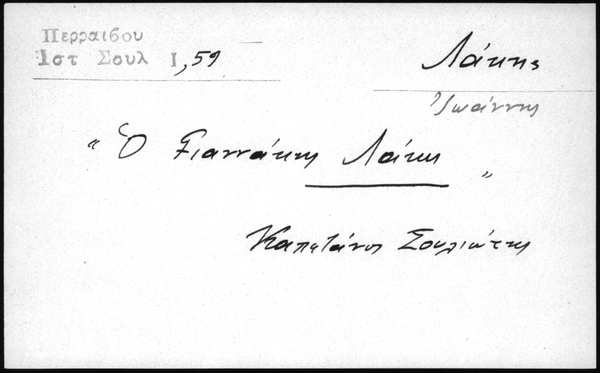 Περραιβου
Ιστ Σουλ Ι, 59
Λάκης
Ἰωάννης
"Ὁ Γιαννάκης Λάκης"
Καπετάνος Σουλιώτης